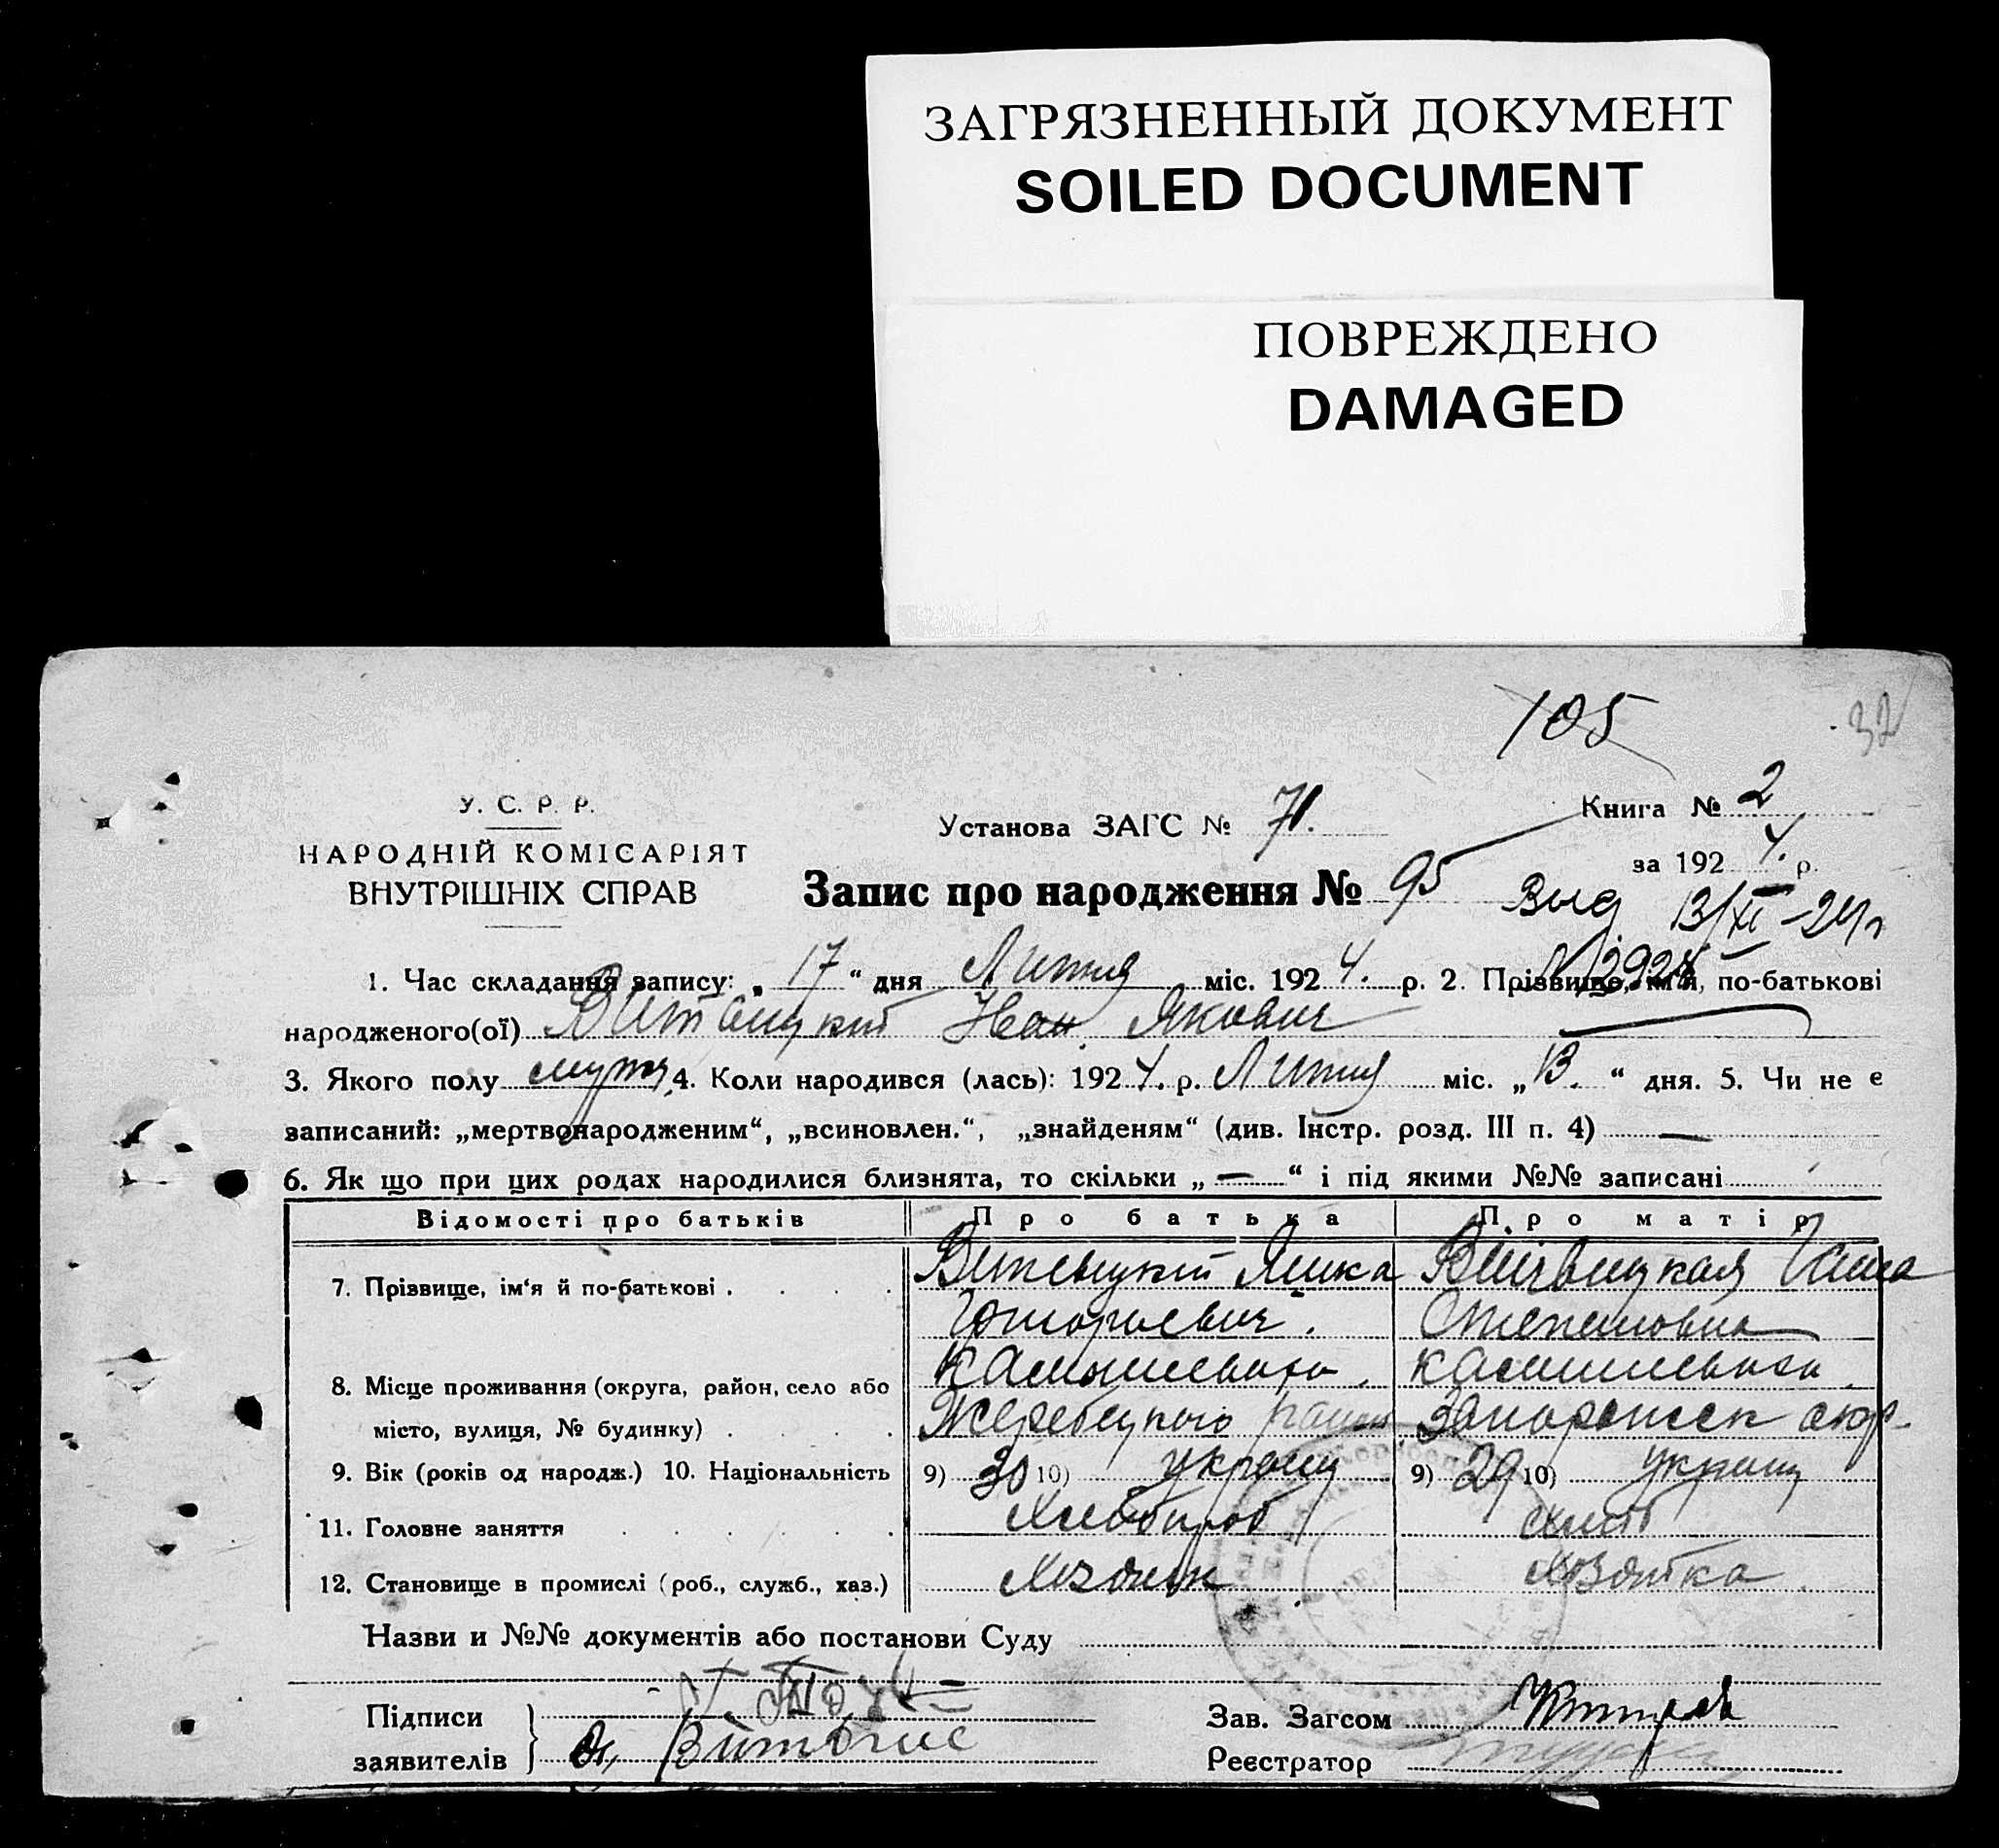 ЗАГРЯЗНЕННЫЙ ДОКУМЕНТ
SOILED DOCUMENT
ПОВРЕЖДЕНО
DAMAGED
105
32
У. С. Р. Р.
НАРОДНІЙ КОМІСАРІЯТ
ВНУТРІШНІХ СПРАВ
Установа ЗАГС № 71.
Книга № 2
за 192 4. р.
Запис про народження № 95
Выд 13/XI-24 г
№ 2928
1. Час складання запису: „ 17 “ дня Липня міс. 192 4. р. 2. Прізвище, ім'я, по-батькові
народженого(ої) Витавцкий Иван Якович
3. Якого полу муж. 4. Коли народився (лась): 192 4. р. Липня міс. „ 13. “ дня. 5. Чи не є
записаний: „мертвонародженим“, „всиновлен.“, „знайденям“ (див. Інстр. розд. III п. 4) —
6. Як що при цих родах народилися близнята, то скільки „ — “ і під якими №№ записані
Відомості про батьків Про батька Про матір
7. Прізвище, ім‘я й по-батькові . . . . Яшка
Григориевич. Степановна
8. Місце проживання (округа, район, село або Камышеваха. Камышеваха.
місто, вулиця, № будинку) . . . . Жеребецкого район Запорожск окр.
9. Вік (років од народж.) 10. Національність 9) 30 10) украин 9) 29 10) украин
11. Головне заняття . . . . . Хлебороб Хлеб
12. Становище в промислі (роб., служб., хаз.) Хозяин Хозяйка
Назви и №№ документів або постанови Суду
Підписи
заявителів
Зав. Загсом
Реєстратор